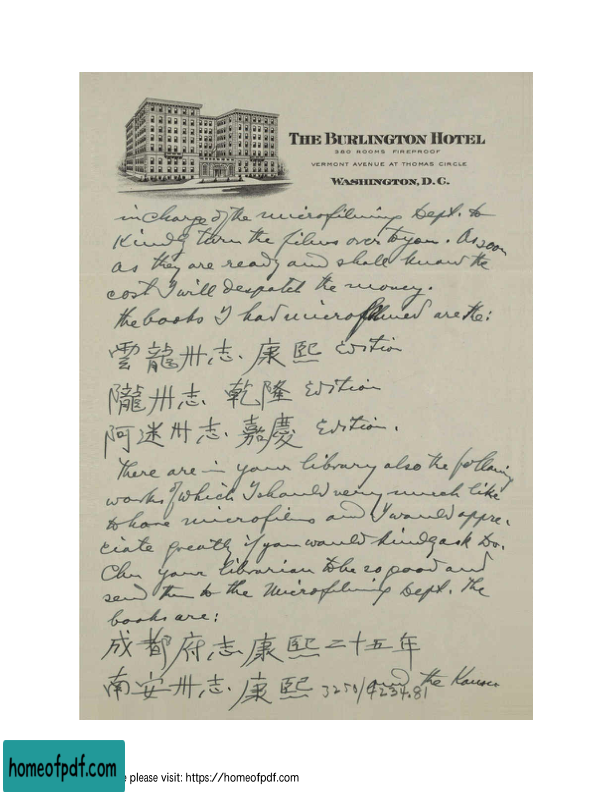 THE BURLINGTON HOTEL
380 ROOMS FIREPROOF
VERMONT AVENUE AT THOMAS CIRCLE
WASHINGTON, D.C.
in charge of the microfilming Dept. to
kindly turn the films over to you. As soon
as they are ready and shall know the
cost I will despatch the money.
The books I had microfilmed are the:
雲龍州志. 康熙 Edition
隴州志. 乾隆 Edition
阿迷州志. 嘉慶 Edition.
There are in your library also the following
works of which I should very much like
to have microfilms and I would appre-
ciate greatly if you would kindly ask Dr.
Chu your librarian to be so good and
send them to the Microfilming Dept. The
books are:
成都府志. 康熙二十五年
南安州志. 康熙 3250/4234.81 and the Kansu
homeofpdf.com
e please visit: https://homeofpdf.com